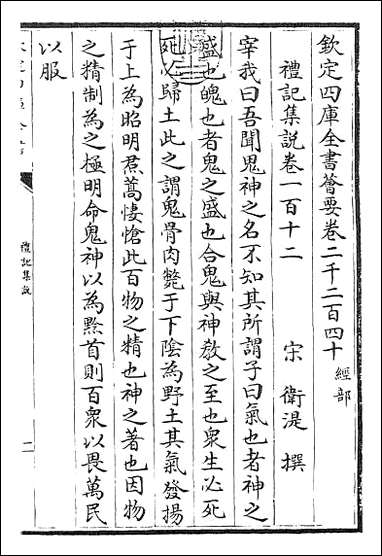 欽定四庫全書薈要卷二千二百四十 經部
禮記集說卷一百十二
宋 衛湜 撰
宰我曰吾聞鬼神之名不知其所謂子曰氣也者神之
盛也魄也者鬼之盛也合鬼與神教之至也衆生必死
死必歸土此之謂鬼骨肉斃于下陰為野土其氣發揚
于上為昭明焄蒿悽愴此百物之精也神之著也因物
之精制為之極明命鬼神以為黔首則百衆以畏萬民
以服
禮記集說